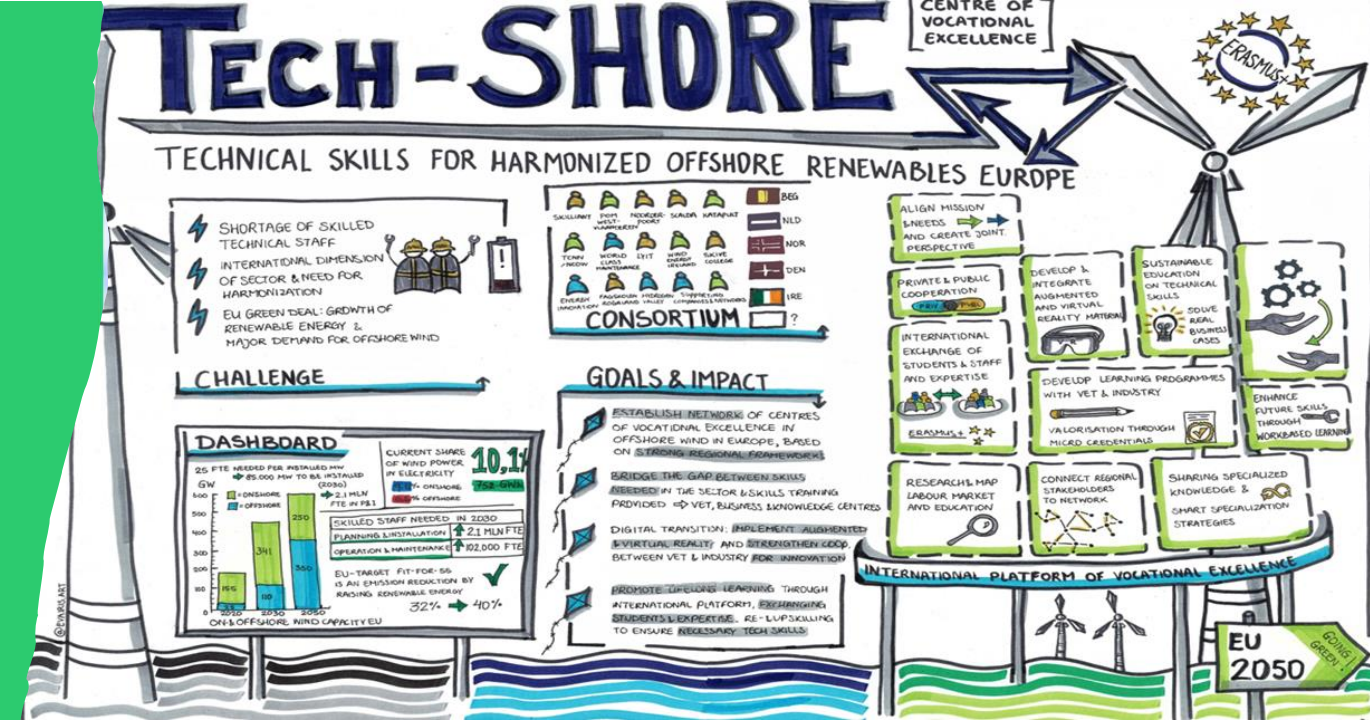 TECH-SHORE
CENTRE OF
VOCATIONAL
EXCELLENCE
ERASMUS+
TECHNICAL SKILLS FOR HARMONIZED OFFSHORE RENEWABLES EUROPE
SHORTAGE OF SKILLED
TECHNICAL STAFF
INTERNATIONAL DIMENSION
OF SECTOR & NEED FOR
HARMONIZATION
EU GREEN DEAL: GROWTH OF
RENEWABLE ENERGY &
MAJOR DEMAND FOR OFFSHORE WIND
CHALLENGE
SKILLIANT
POM
WEST-
VLAANDEREN
NOORDER-
POORT
SCALDA
KATAPULT
WORLD
CLASS
MAINTENANCE
LYIT
WIND
ENERGY
IRELAND
COLLEGE
ENERGY
INNOVATION
ROGALAND
HYDROGEN
VALLEY
SUPPORTING
COMPANIES & NETWORKS
BEG
NLD
NOR
DEN
IRE
?
CONSORTIUM
DASHBOARD
25 FTE NEEDED PER INSTALLED MW
85.000 MW TO BE INSTALLED
(2030)
2.1 MLN
FTE IN P&I
GW
=ONSHORE
=OFFSHORE
600
500
400
300
200
100
0
341
110
250
2020
2030
2050
ON & OFFSHORE WIND CAPACITY EU
CURRENT SHARE
OF WIND POWER
IN ELECTRICITY
10,1%
% ONSHORE
% OFFSHORE
SKILLED STAFF NEEDED IN 2030
PLANNING & INSTALLATION
2.1 MLN FTE
OPERATION & MAINTENANCE
102,000 FTE
EU-TARGET FIT-FOR-55
IS AN EMISSION REDUCTION BY
RAISING RENEWABLE ENERGY
32%
40%
GOALS & IMPACT
ESTABLISH NETWORK OF CENTRES
OF VOCATIONAL EXCELLENCE IN
OFFSHORE WIND IN EUROPE, BASED
ON STRONG REGIONAL FRAMEWORK
BRIDGE THE GAP BETWEEN SKILLS
NEEDED IN THE SECTOR & SKILLS TRAINING
PROVIDED VET, BUSINESS & KNOWLEDGE CENTRES
DIGITAL TRANSITION: IMPLEMENT AUGMENTED
& VIRTUAL REALITY AND STRENGTHEN COOP.
BETWEEN VET & INDUSTRY FOR INNOVATION
PROMOTE LIFELONG LEARNING THROUGH
INTERNATIONAL PLATFORM, EXCHANGING
STUDENTS & EXPERTISE. RE- & UPSKILLING
TO ENSURE NECESSARY TECH SKILLS
ALIGN MISSION
& NEEDS
AND CREATE JOINT
PERSPECTIVE
PRIVATE & PUBLIC
COOPERATION
INTERNATIONAL
EXCHANGE OF
STUDENTS & STAFF
AND EXPERTISE
ERASMUS+
DEVELOP &
INTEGRATE
AUGMENTED
AND VIRTUAL
REALITY MATERIAL
SUSTAINABLE
EDUCATION
ON TECHNICAL
SKILLS
SOLVE
REAL
BUSINESS
CASES
DEVELOP LEARNING PROGRAMMES
WITH VET & INDUSTRY
VALORISATION THROUGH
MICRO CREDENTIALS
ENHANCE
FUTURE SKILLS
THROUGH
WORKBASED LEARNING
RESEARCH & MAP
LABOUR MARKET
AND EDUCATION
CONNECT REGIONAL
STAKEHOLDERS
TO NETWORK
SHARING SPECIALIZED
KNOWLEDGE &
SMART SPECIALIZATION
STRATEGIES
INTERNATIONAL PLATFORM OF VOCATIONAL EXCELLENCE
EU
2050
GOING
GREEN!